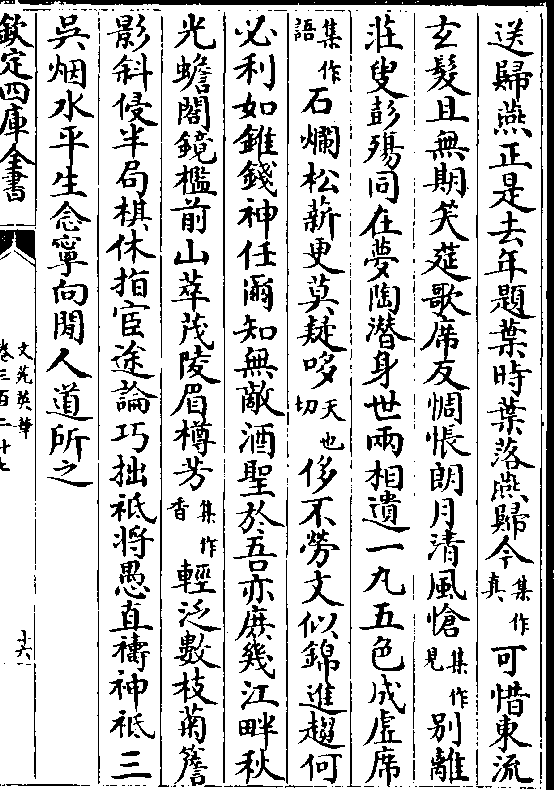 送歸燕正是去年題葉時葉落燕歸今集作真可惜東流
玄髮且無期笑莚歌席反惆悵朗月清風愴集作見别離
莊叟彭殤同在夢陶潛身世兩相遺一丸五色成虛席
集作語石爛松薪更莫疑哆天也切侈不勞文似錦進趨何
必利如錐錢神任爾知無敵酒聖於吾亦庶幾江畔秋
光蟾閣鏡檻前山萃茂陵眉樽芳集作香輕泛數枝菊簷
影斜侵半局棋休指宦途論巧拙祗將愚直禱神祗三
吳烟水平生念寧向閒人道所之
欽定四庫全書
文苑英華
卷三百二十七
十六